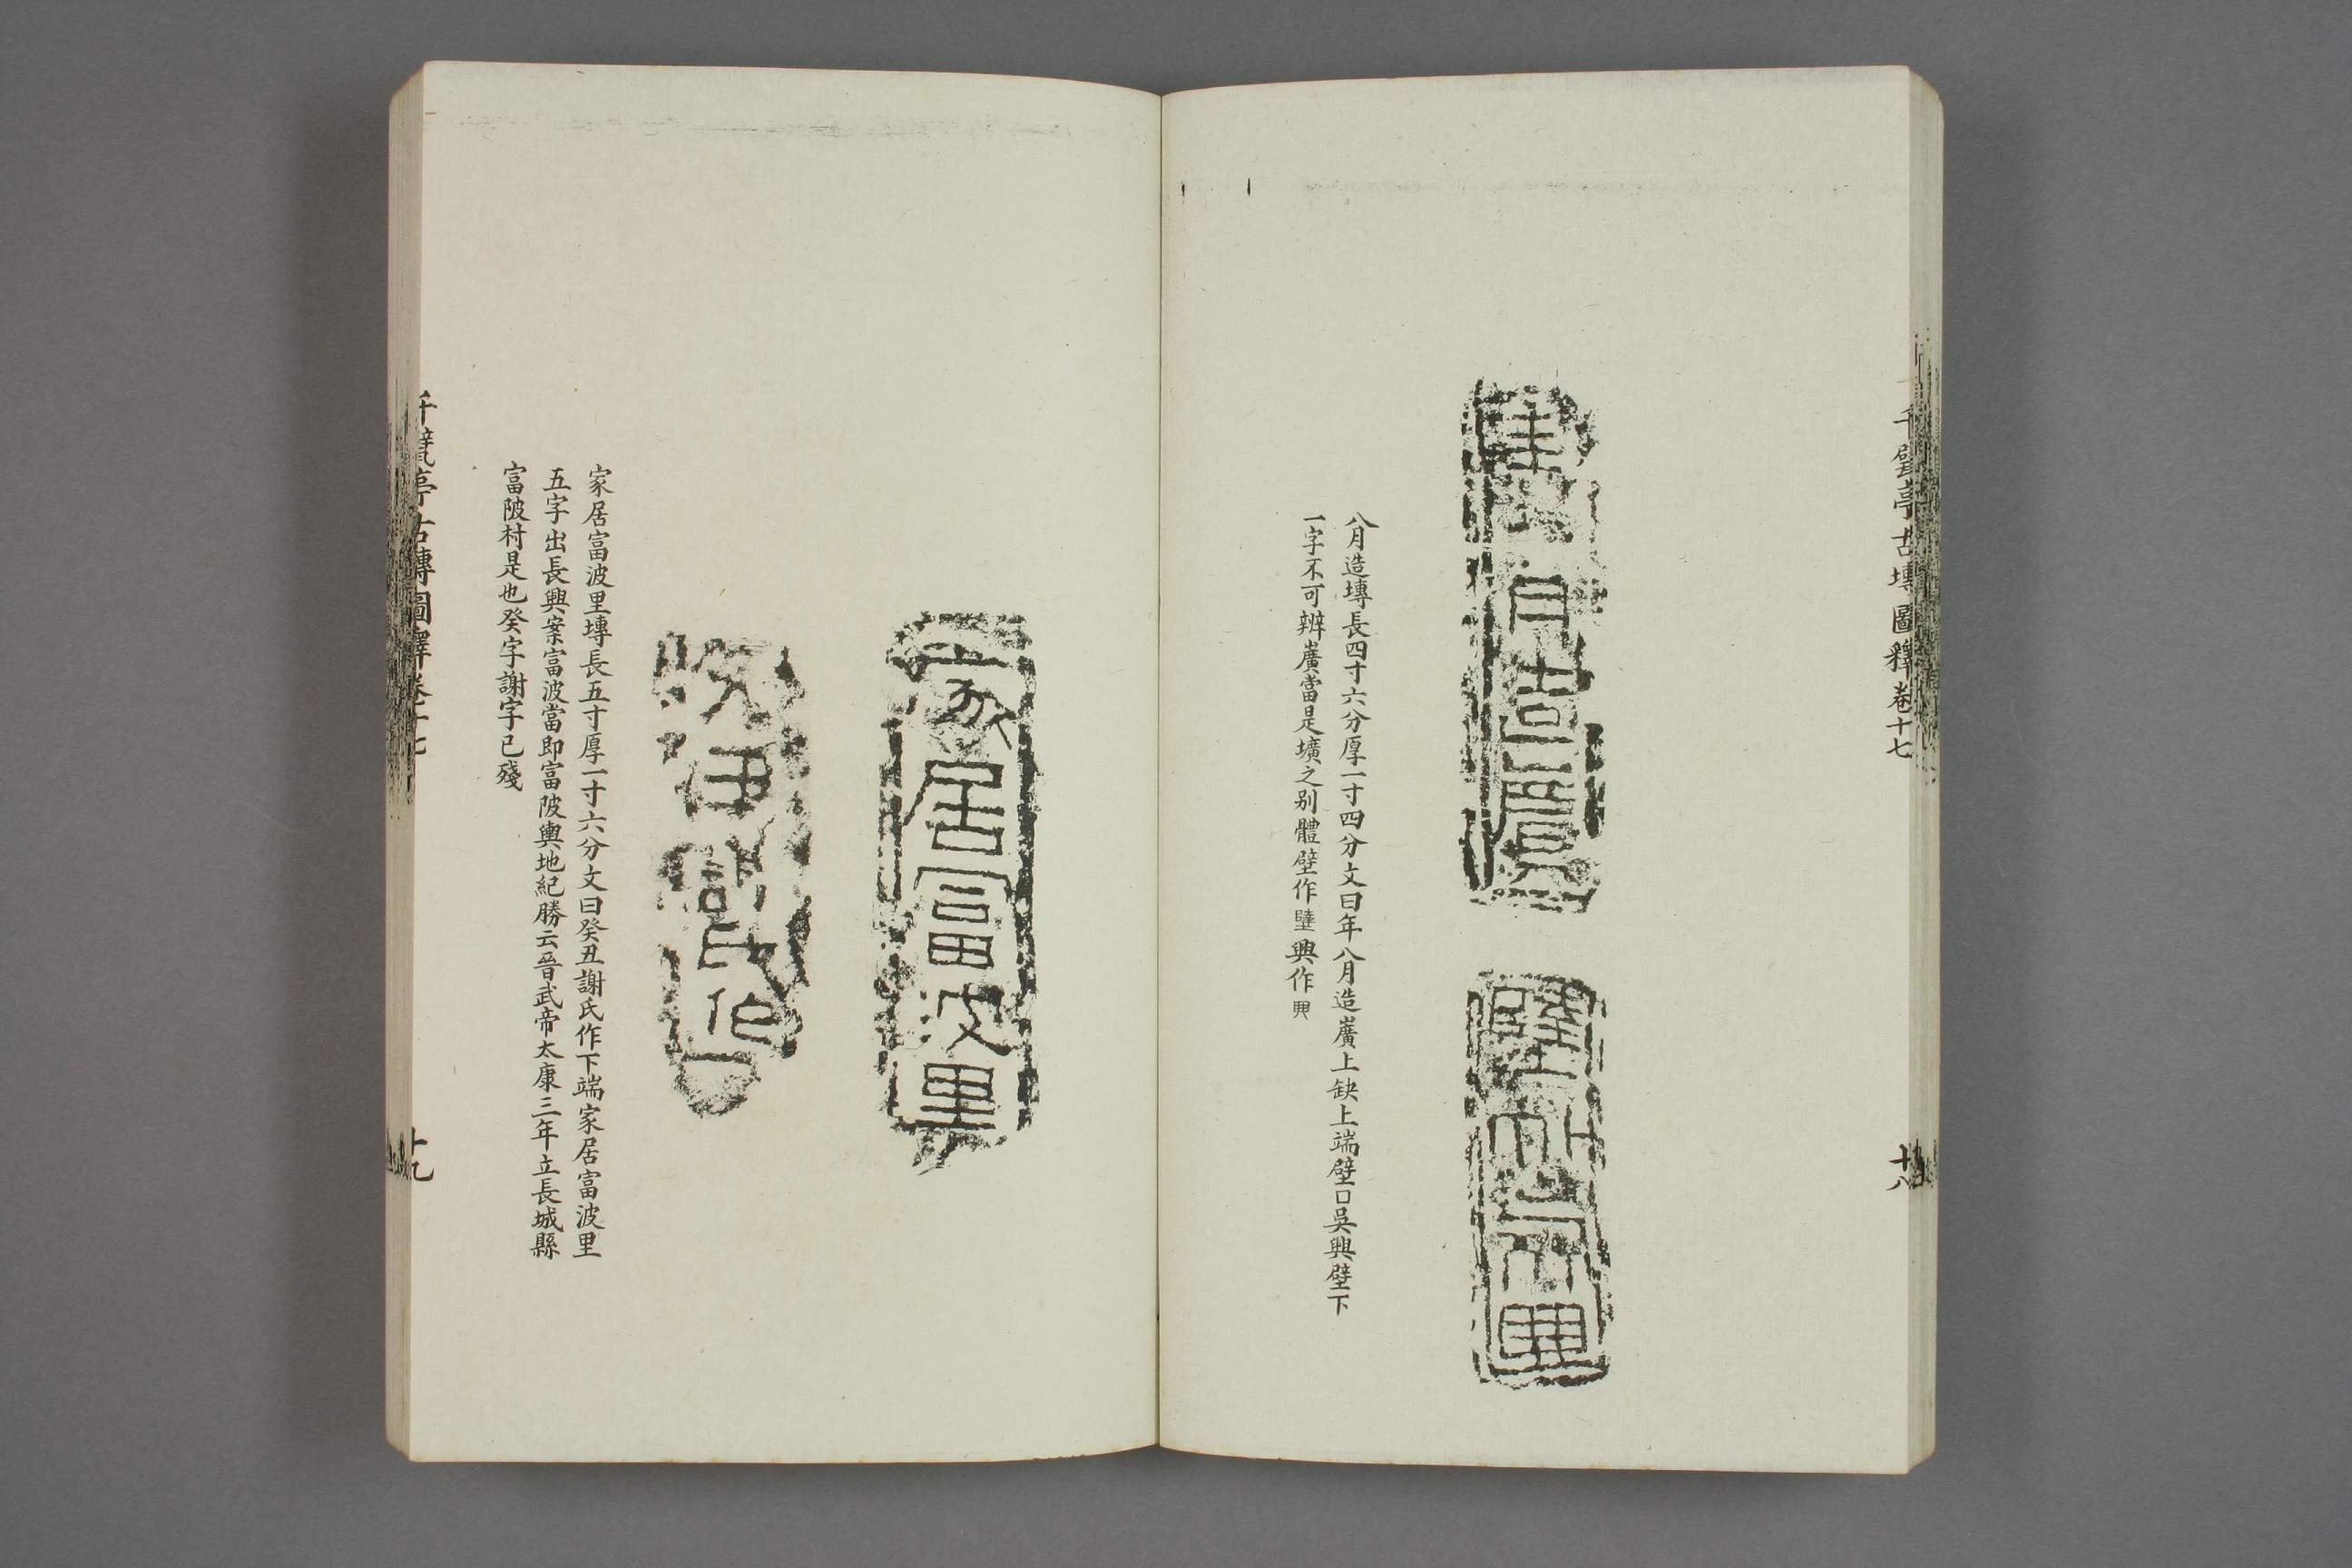 千甓亭古塼圖釋卷十七
十八
年八月造廣
壁
吳興
八月造塼長四寸六分厚一寸四分文曰年八月造廣上缺上端壁口吳興壁下
一字不可辨廣當是壙之别體壁作壁興作興
家居富波里
癸丑謝氏作
家居富波里塼長五寸厚一寸六分文曰癸丑謝氏作下端家居富波里
五字出長興案富波當即富陂輿地紀勝云晉武帝太康三年立長城縣
富陂村是也癸字謝字已殘
千甓亭古塼圖釋卷十七
十九